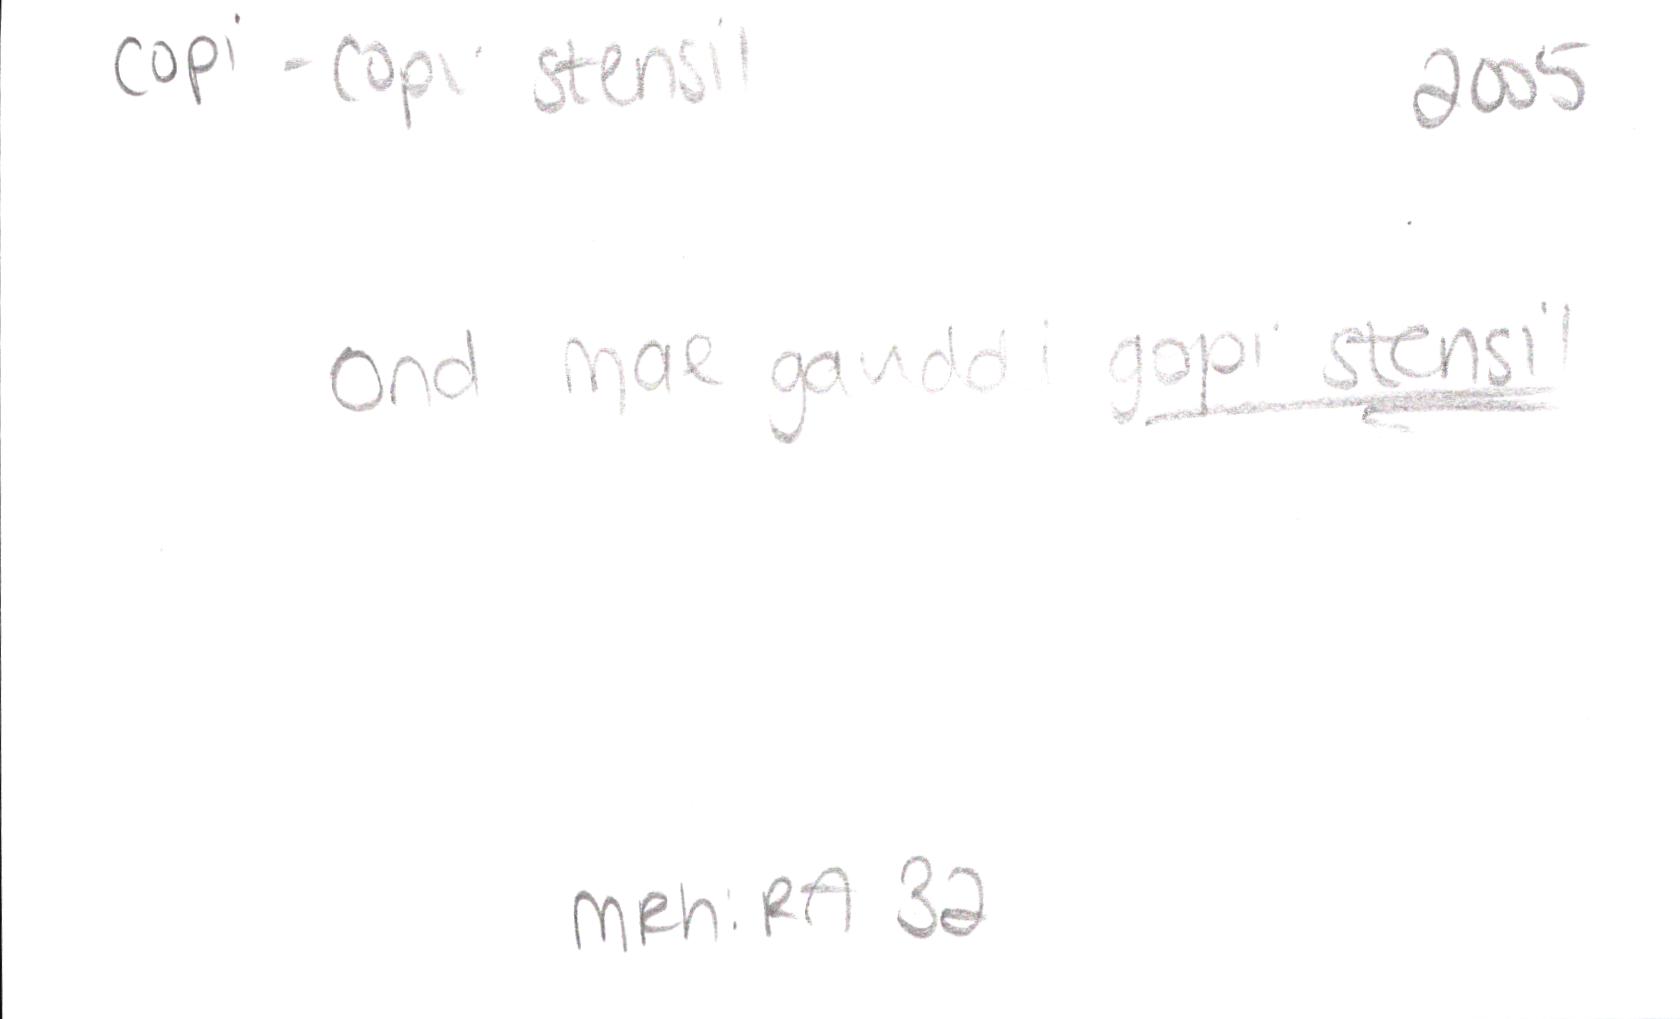 copi - copi stensil 2005
Ond mae ganddi gopi stensil
MRh: RA 32